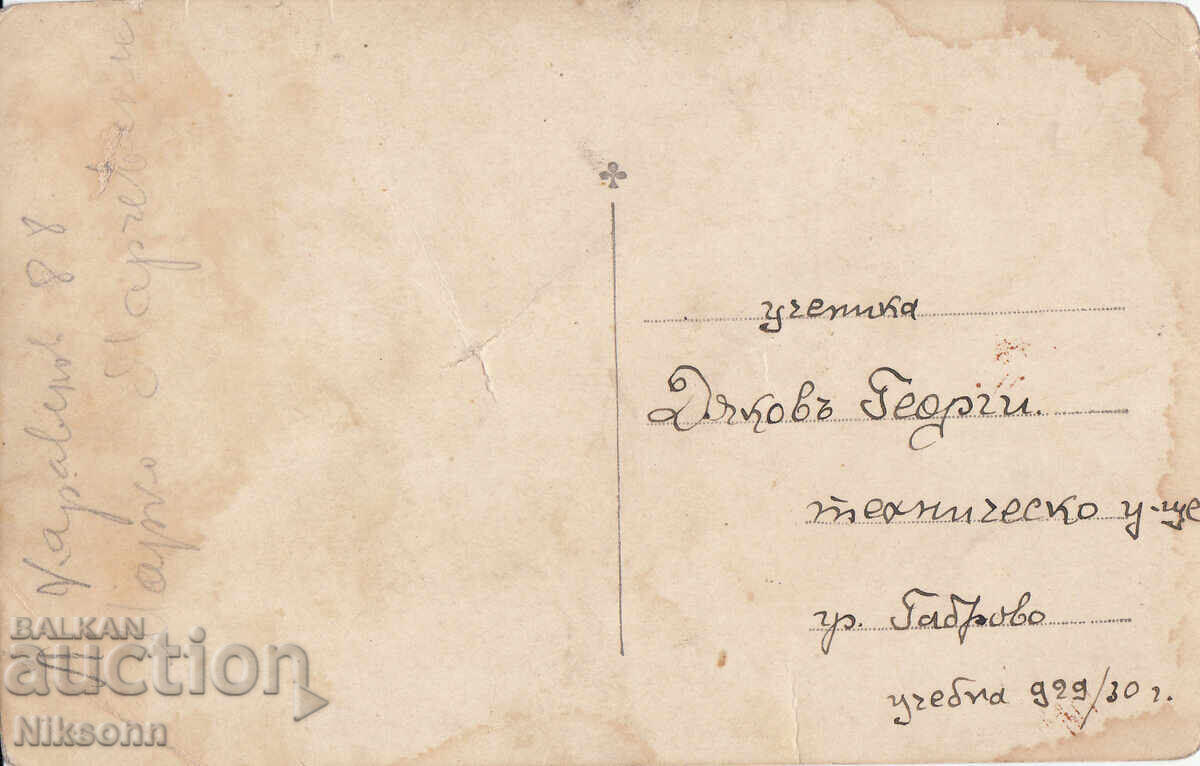 ученика
Дяковъ Георги.
техническо у-ще
гр. Габрово
учебна 929/30 г.
Каравелов 88
Марко
BALKAN
auction
Niksonn